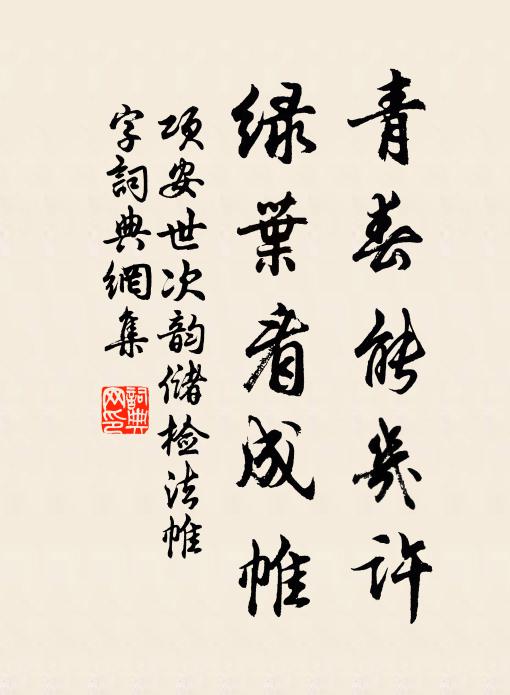 青春能几许
绿叶看成帷
项安世次韵储检法帷
字词典网集
词典网印